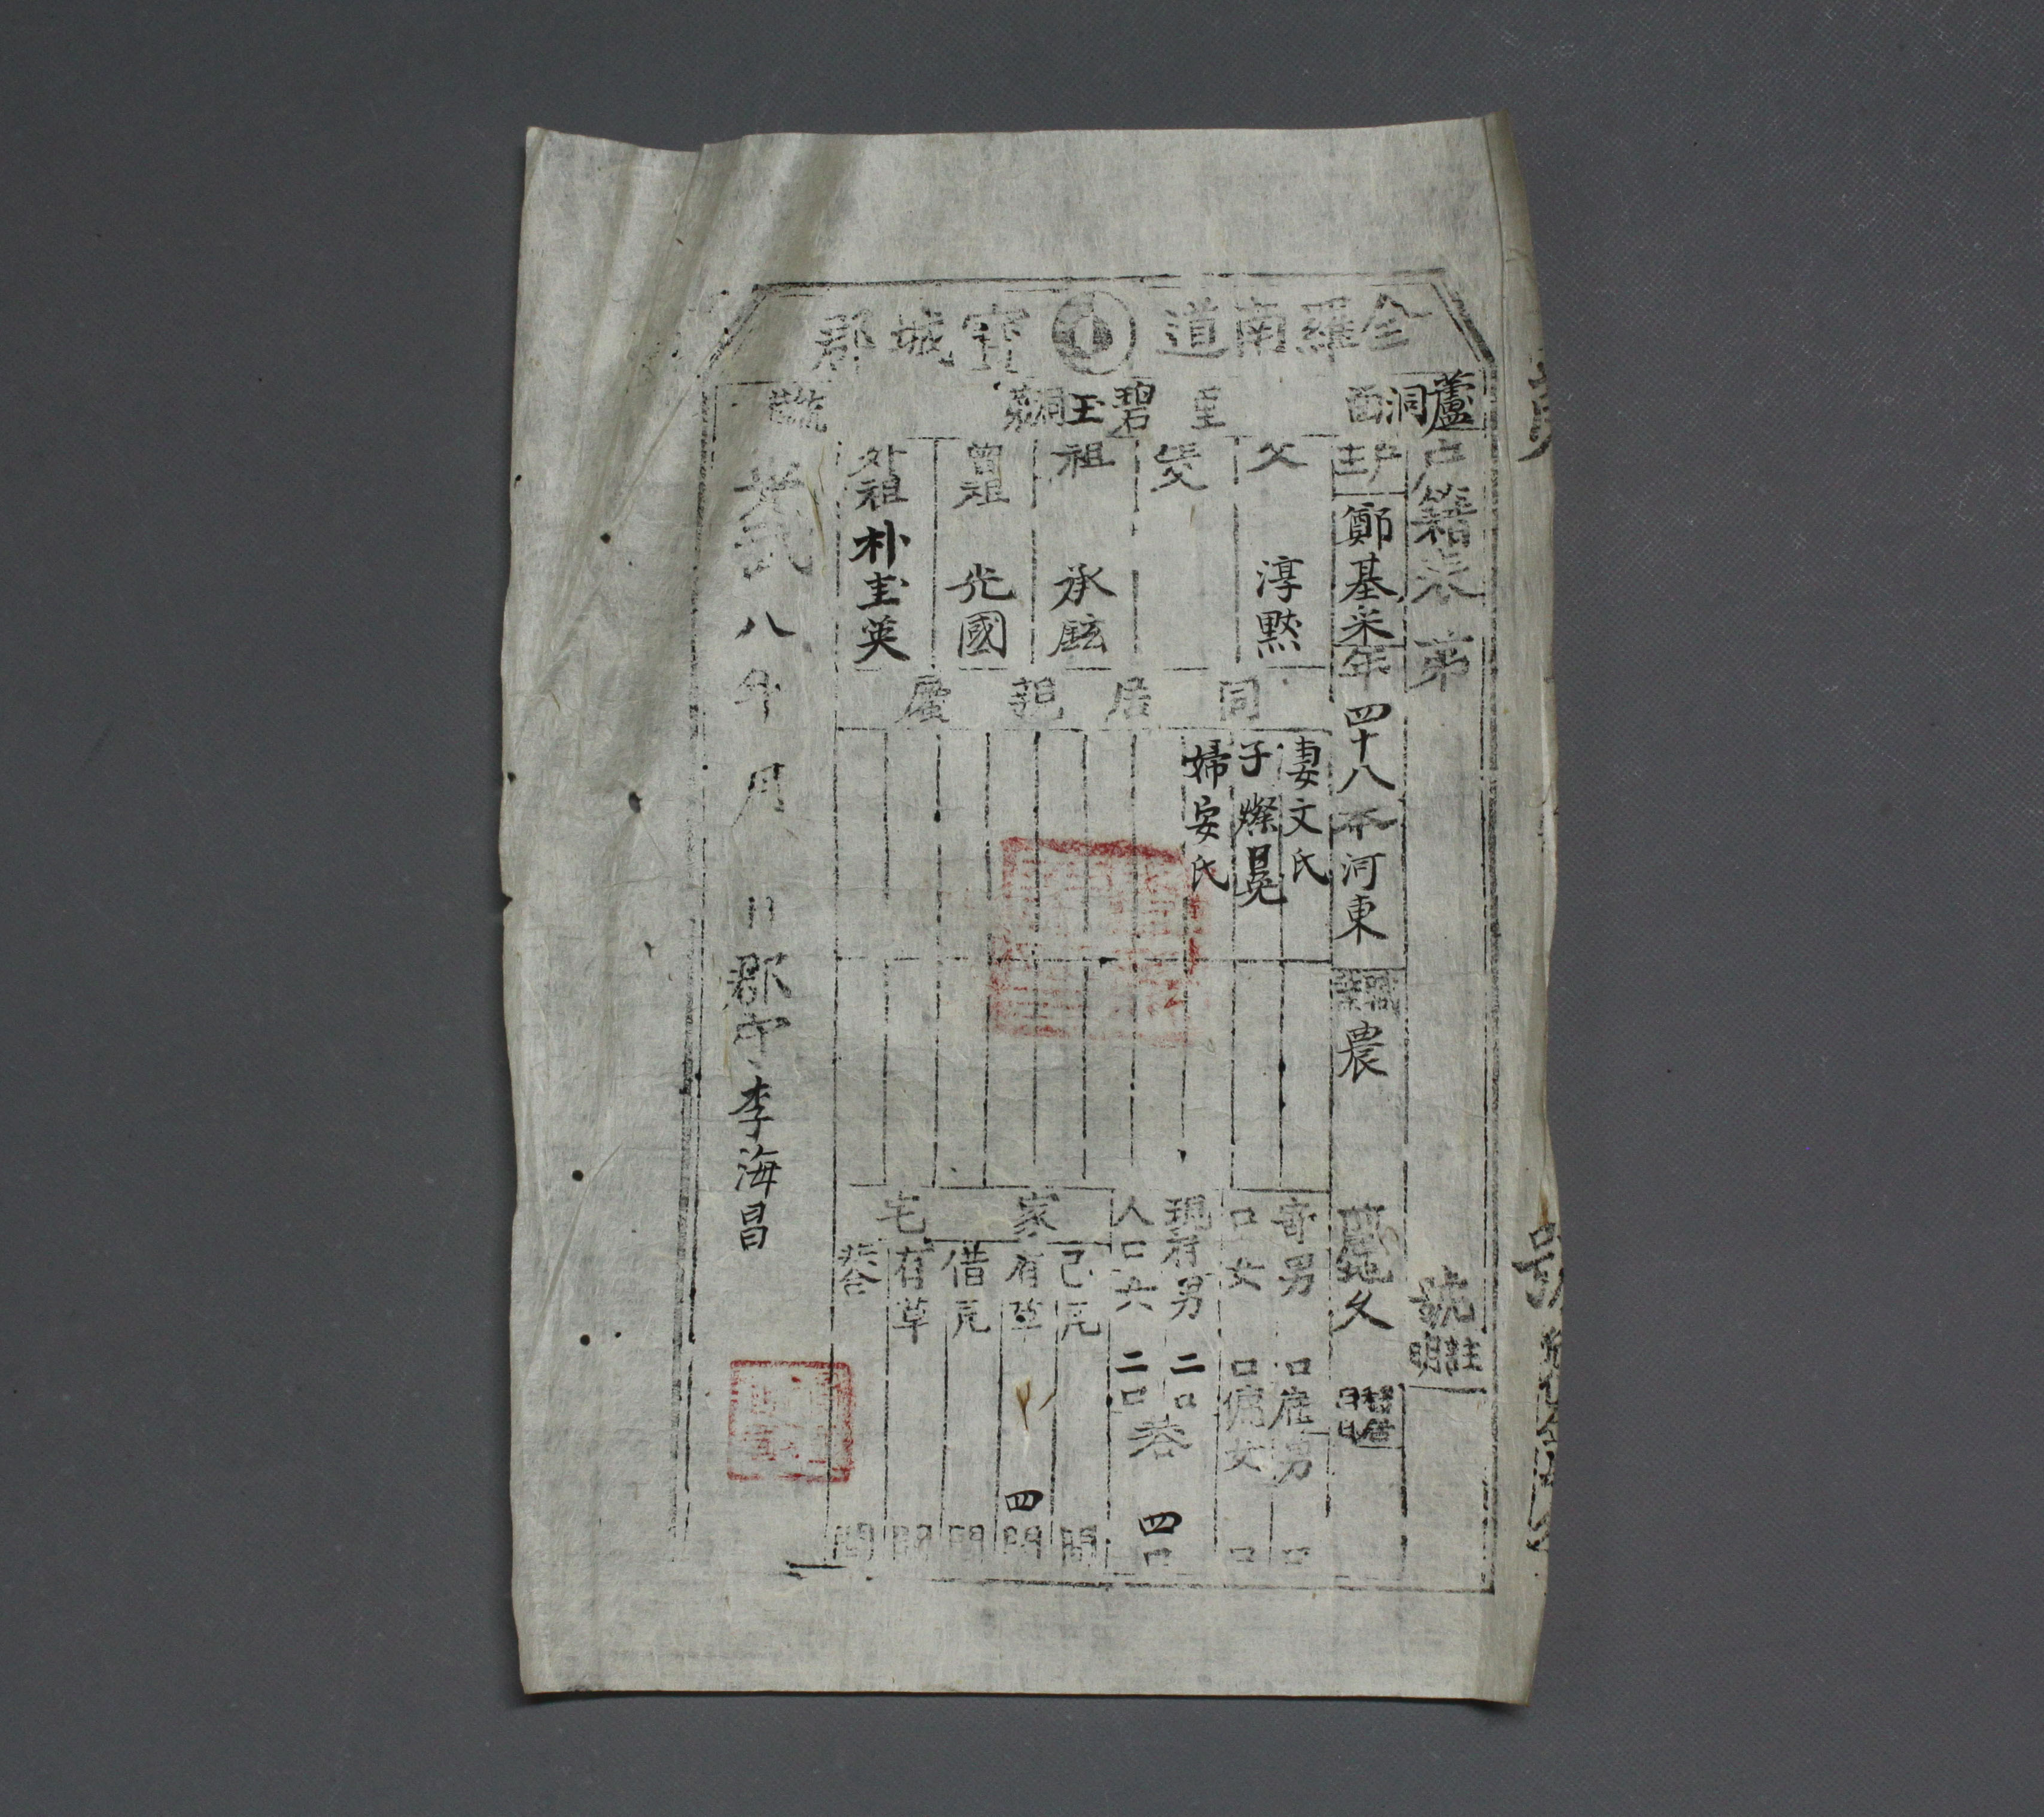 全羅南道 寶城郡
蘆洞面 里 碧玉洞 統 號
戶籍表 第 號
戶主 鄭基采 年 四十八 本 河東 職業 農
父 淳默
生父
祖 承鉉
曾祖 光國
外祖 朴圭英
同居親屬
妻文氏
子燦冕
婦安氏
寄男 口 雇男 口
口女 口 傭女 口
現存男 二口
人口女 二口 共 四口
家宅
己瓦 間
有草 四間
借瓦 間
有草 間
共合 間
光武八年 月 日 郡守 李海昌